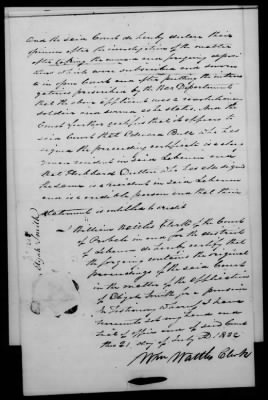 And the said Court do hereby declare their
opinion after the investigation of the matter
after the and foregoing
that which were subscribed and sworn
to in open Court and after putting the inter
gatories prescribed by the War Department
that the above applicant was a revolutionary
soldier and served as he states. And the
Court further certifies that it appears to
said Court that who has
signed the preceding certificate is a clergy
man resident in said Lebanon and
that who has also signed
the same is a resident in said Lebanon
and is a credible person and that their
statement is entitled to credit
I William Wattles Clerk of the Court
of Probate in and for the district
of Lebanon do hereby certify that
the foregoing contains the original
proceedings of the said Court
in the matter of the application
of Elijah Smith for a pension
In testimony whereof I have
hereunto set my hand and
seal of office of said Court
this 21 day of July AD. 1832
Wm Wattles Clerk
Elijah Smith